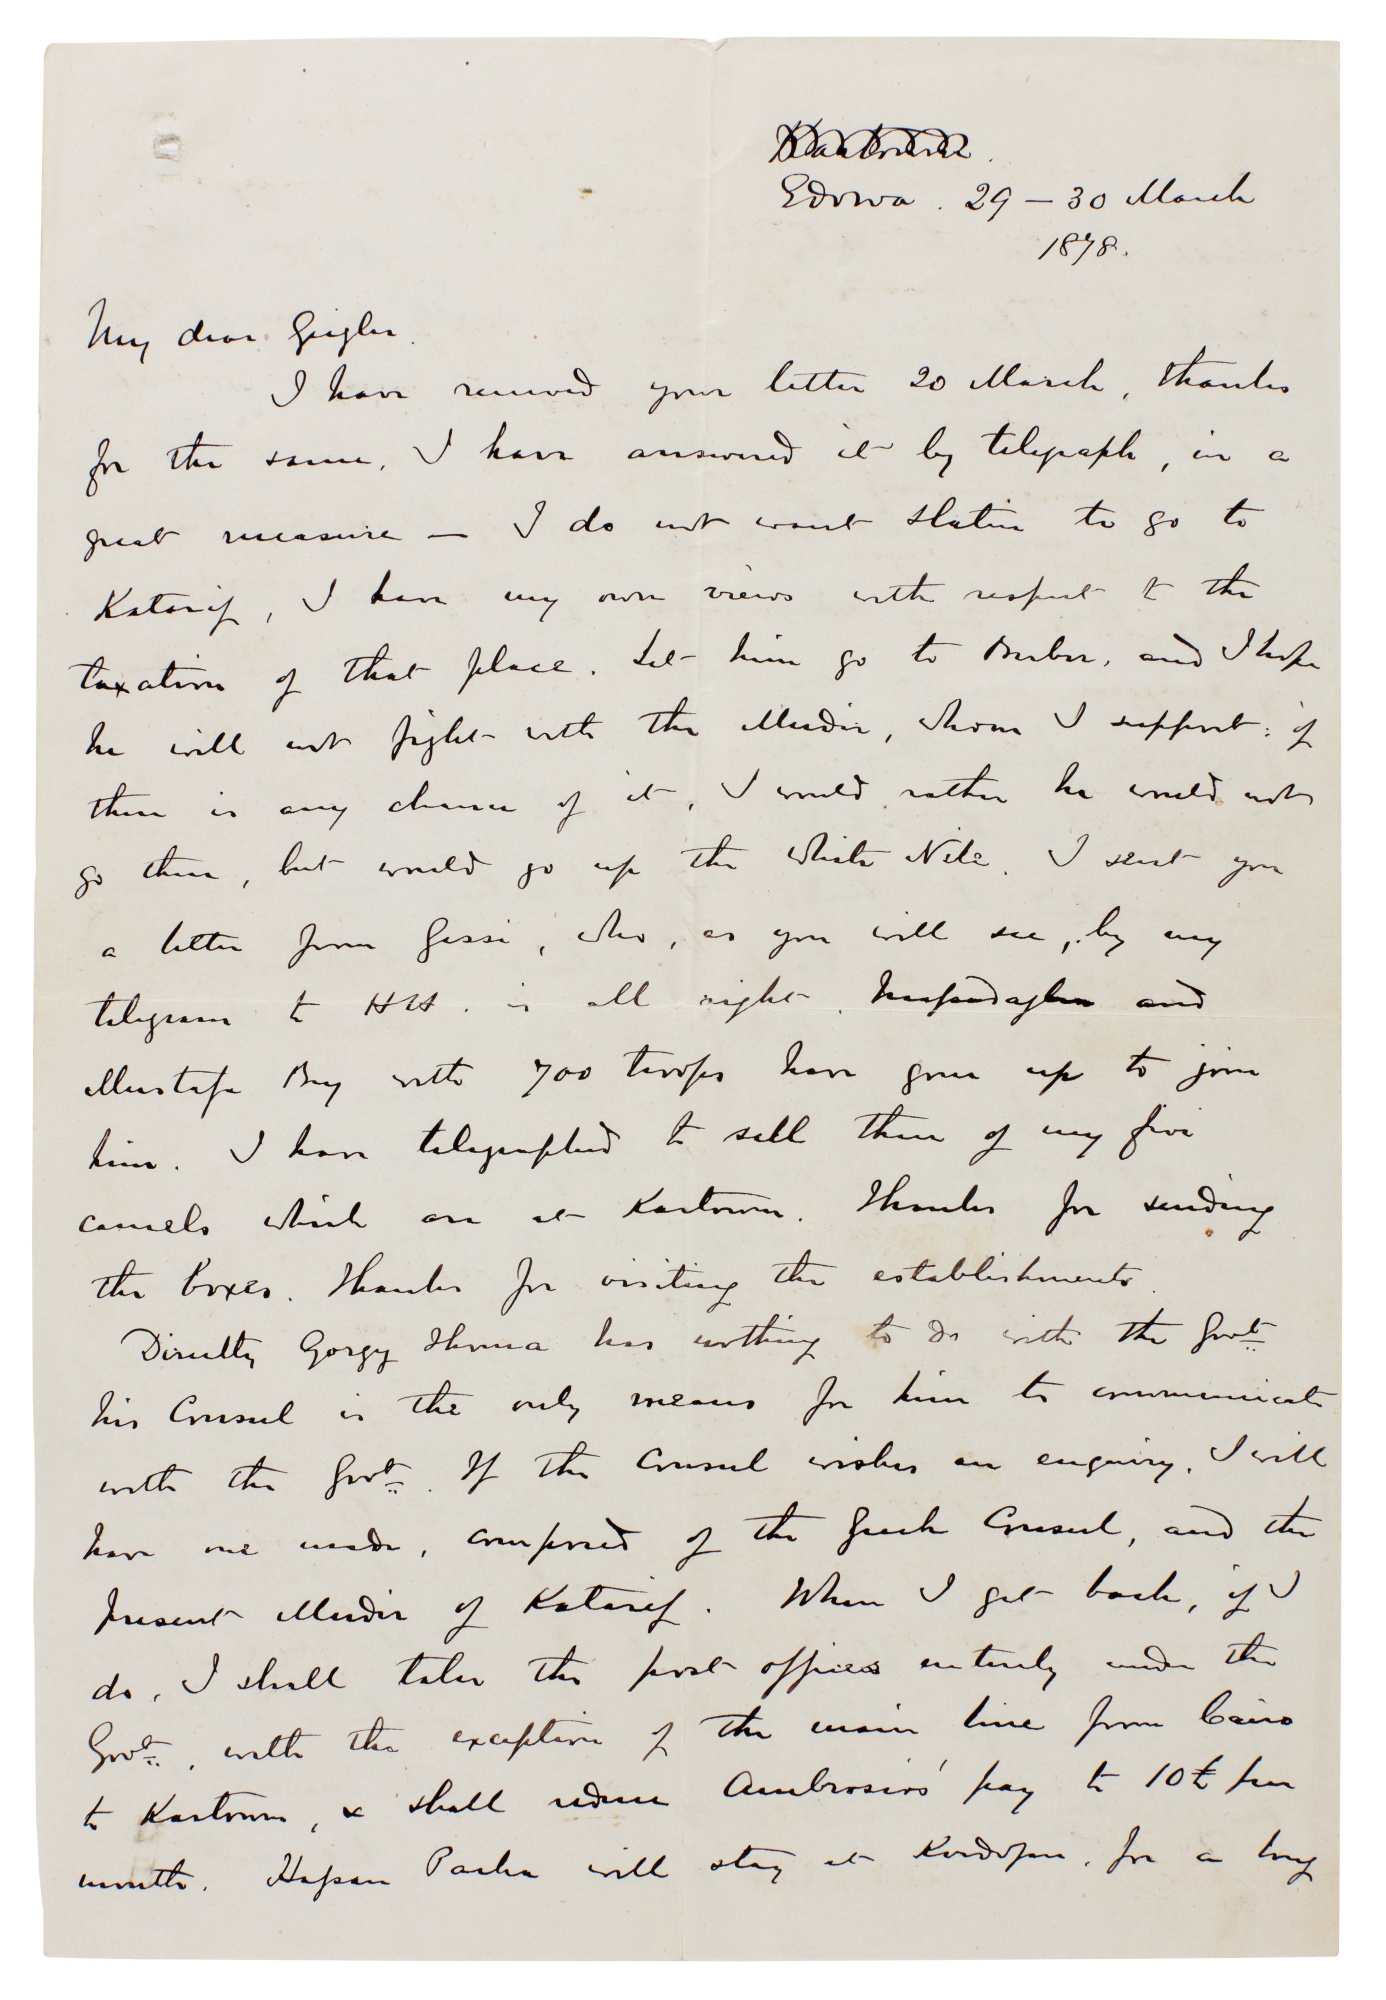 Edowa. 29 – 30 March
1878.
My dear Giegler.
I have received your letter 20 March, thanks
for the same, I have answered it by telegraph, in a
great measure — I do not want Slatin to go to
Katarif, I have my own views with respect to the
taxation of that place. Let him go to Berber, and I hope
he will not fight with the Mudir, whom I support: if
there is any chance of it, I would rather he would not
go there, but would go up the White Nile. I sent you
a letter from Gessi, who, as you will see, by my
telegram to HH. is all right. and
Mustafa Bey with 700 troops have gone up to join
him. I have telegraphed to sell three of my five
camels which are at Kartoum. Thanks for sending
the boxes. Thanks for visiting the establishments.
Directly Gorgy Thoma has nothing to do with the Govt.
his Consul is the only means for him to communicate
with the Govt. If the Consul wishes an enquiry, I will
have one made, composed of the Greek Consul, and the
present Mudir of Katarif. When I get back, if I
do, I shall take the post offices entirely under the
Govt., with the exception of the main line from Cairo
to Kartoum, & shall reduce Ambrosios' pay to 10£ per
month. Hassan Pacha will stay at Kordofan, for a long